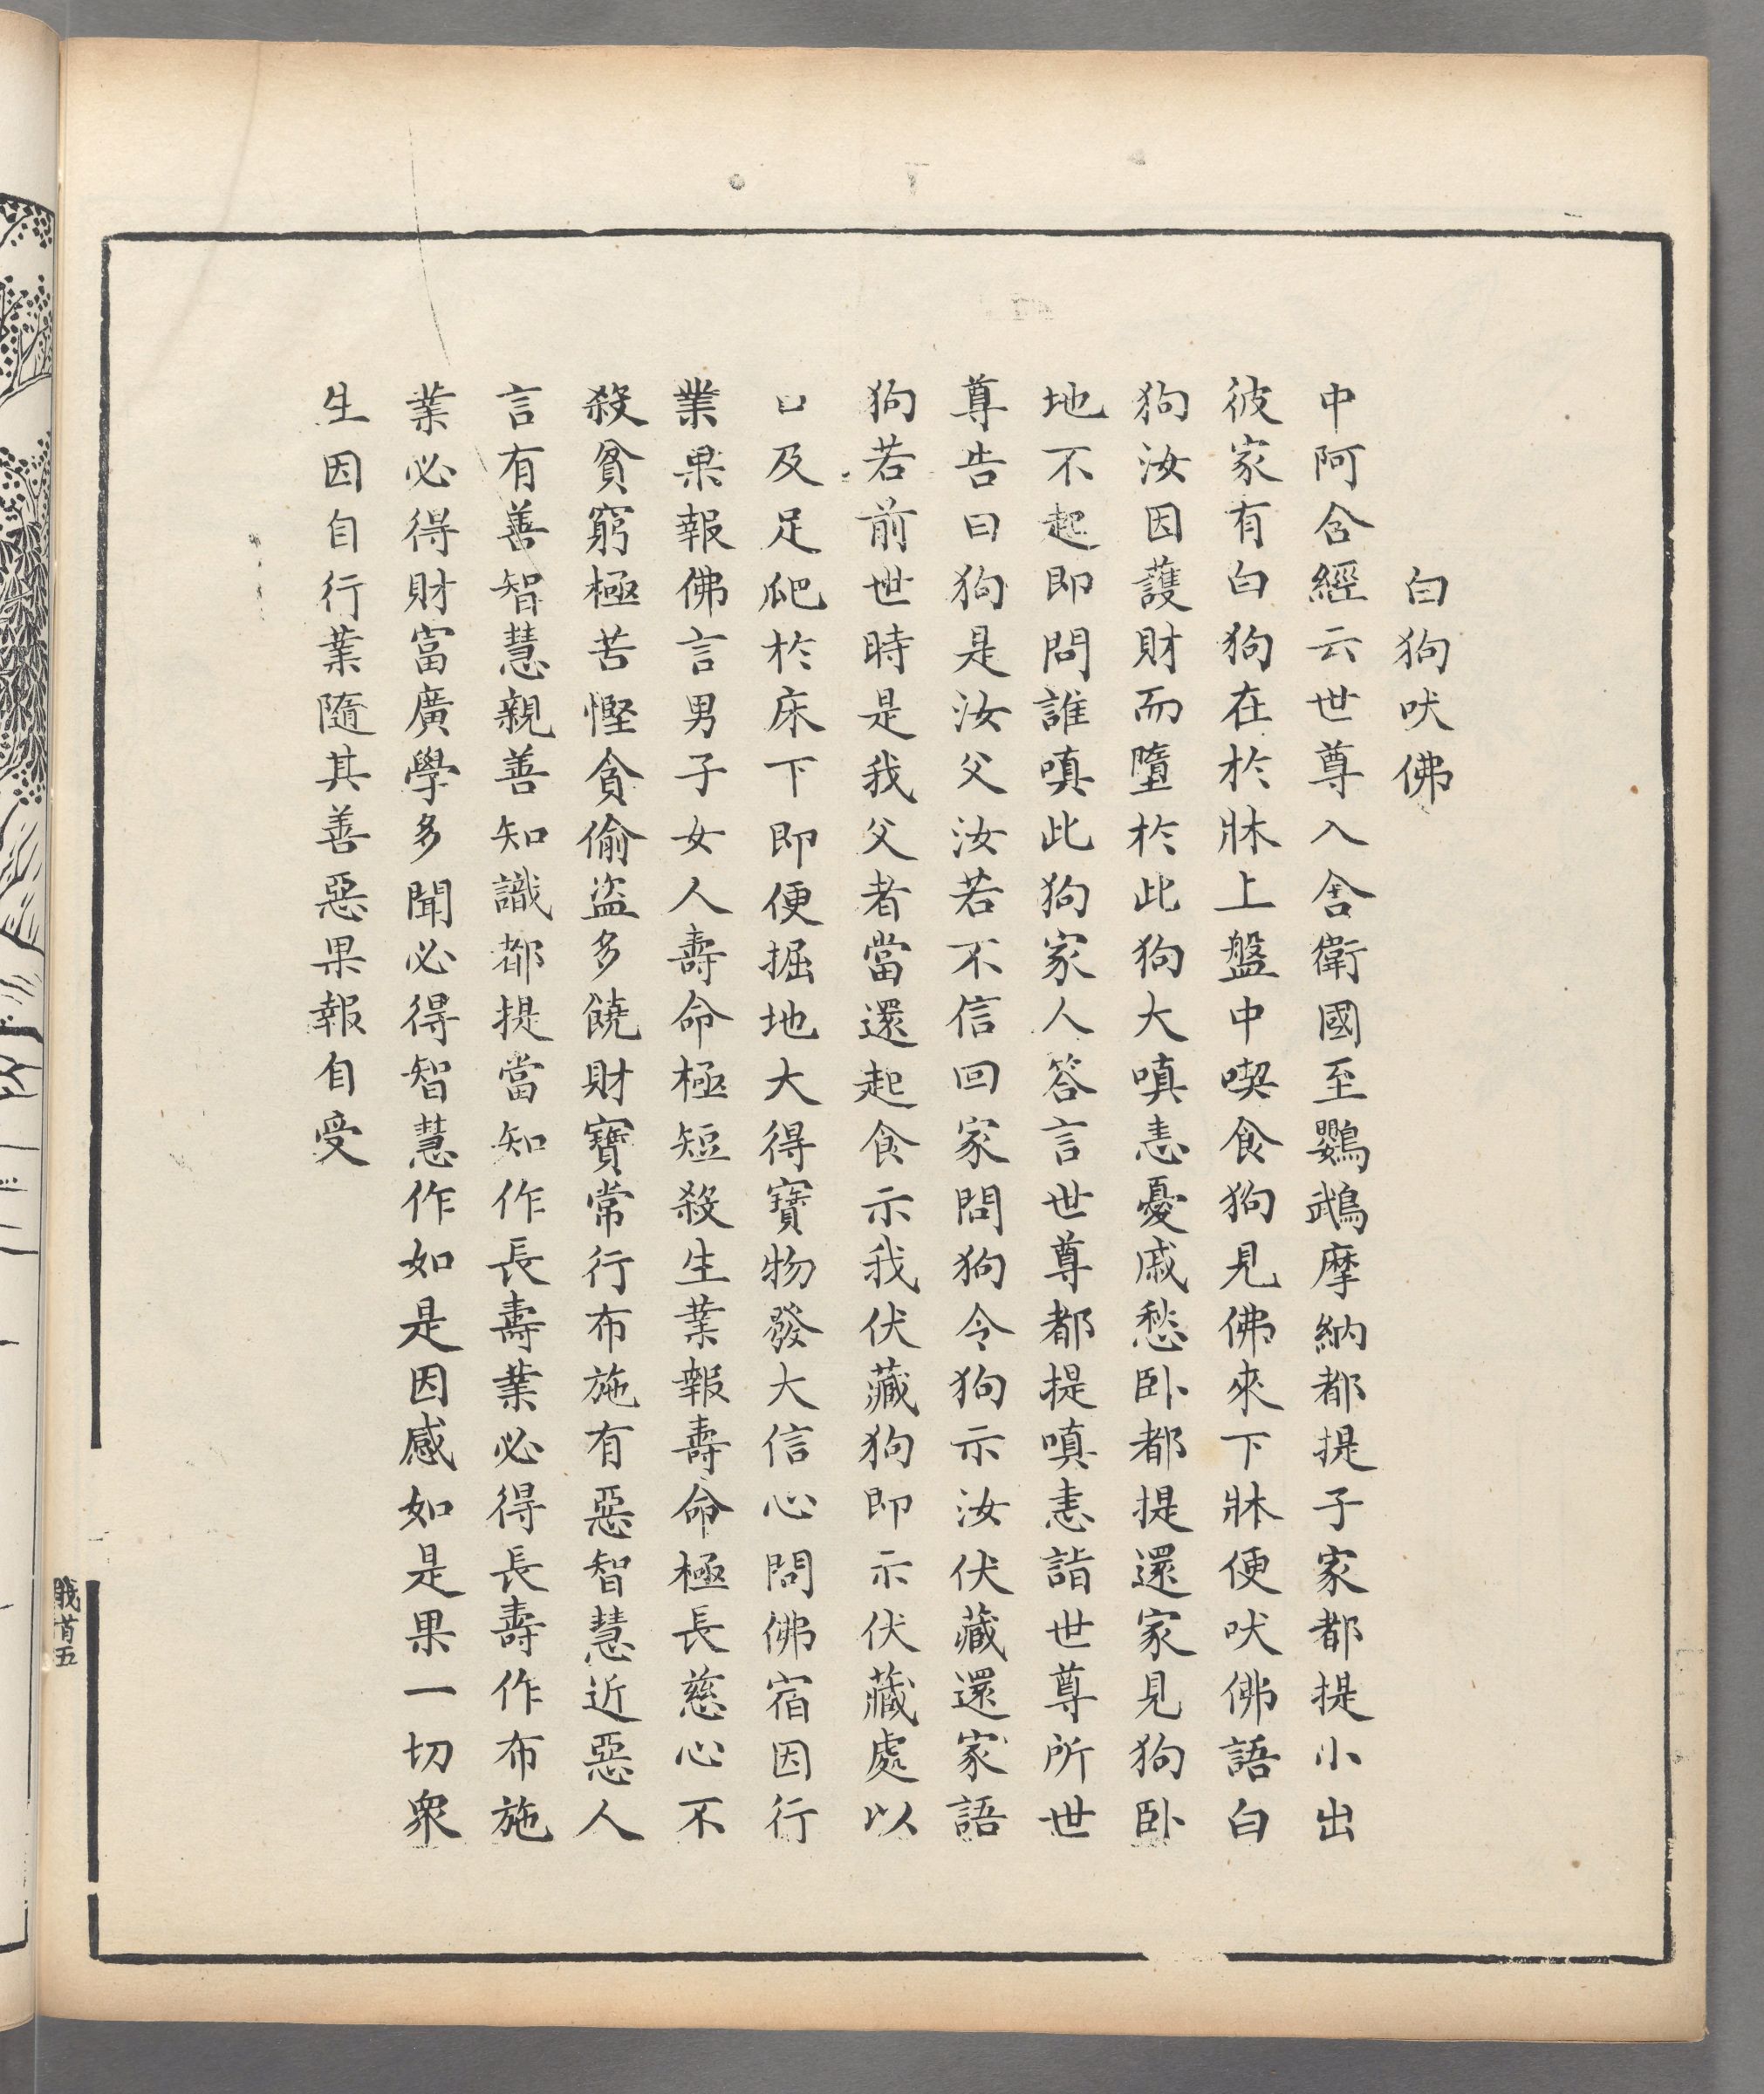 白狗吠佛
中阿含經云世尊入舍衛國至鸚鵡摩納都提子家都提小出
彼家有白狗在於牀上盤中喫食狗見佛來下牀便吠佛語白
狗汝因護財而墮於此狗大嗔恚憂慼愁卧都提還家見狗卧
地不起即問誰嗔此狗家人答言世尊都提嗔恚詣世尊所世
尊告曰狗是汝父汝若不信回家問狗令狗示汝伏藏還家語
狗若前世時是我父者當還起食示我伏藏狗即示伏藏處以
口及足爬於床下即便掘地大得寶物發大信心問佛宿因行
業果報佛言男子女人壽命極短殺生業報壽命極長慈心不
殺貧窮極苦慳貪偷盜多饒財寶常行布施有惡智慧近惡人
言有善智慧親善知識都提當知作長壽業必得長壽作布施
業必得財富廣學多聞必得智慧作如是因感如是果一切衆
生因自行業隨其善惡果報自受